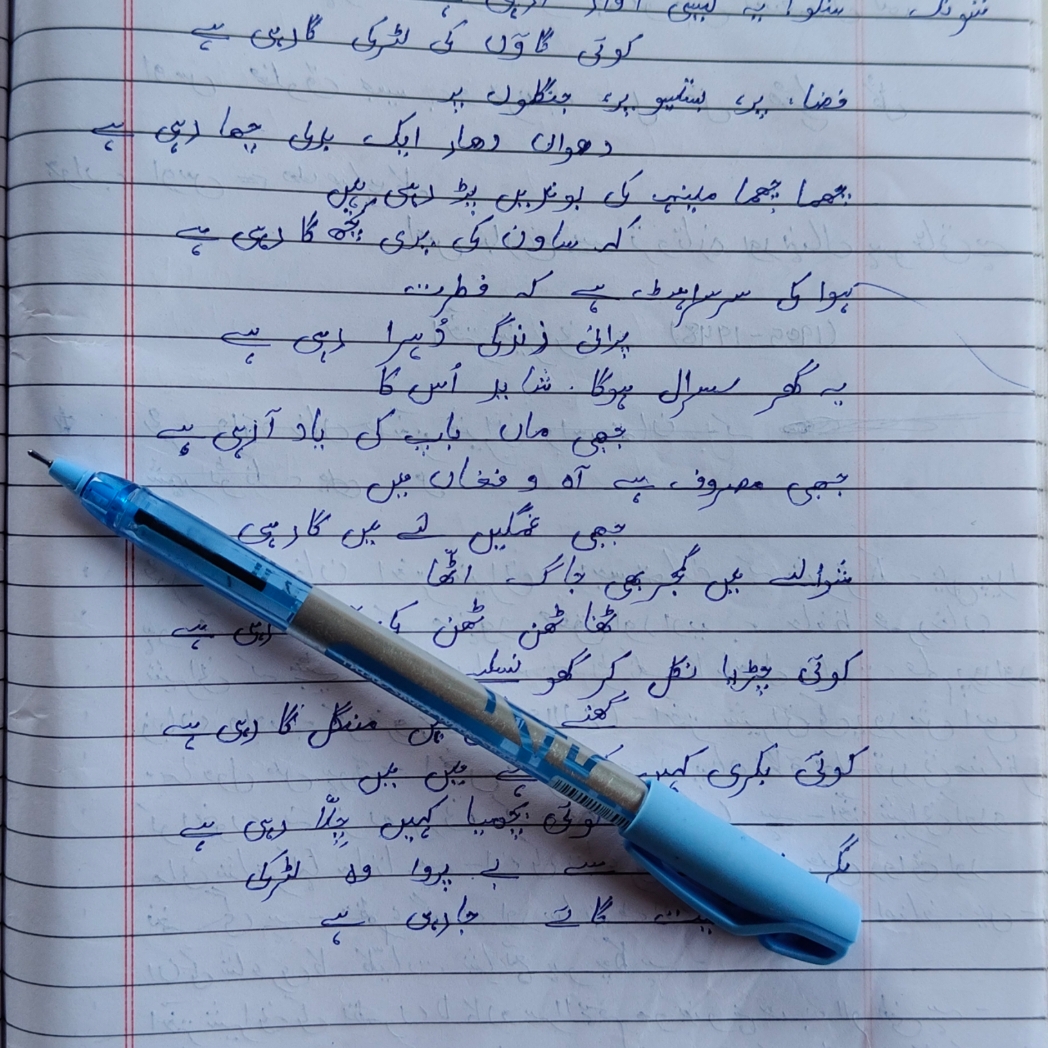 سنو یہ کیسی آواز آرہی ہے
کوئی گاؤں کی لڑکی گارہی ہے
فضاء پر، بستیو پر، جنگلوں پر
دھواں دھار ایک بدلی چھا رہی ہے
چھما چھما مینہہ کی بوندیں پڑ رہی ہیں
کہ ساون کی پری کچھ گا رہی ہے
ہوا کی سرسراہٹ ہے کہ فطرت
پرانی زندگی دُہرا رہی ہے
یہ گھر سسرال ہوگا شاید اُس کا
جبھی ماں باپ کی یاد آرہی ہے
جبھی مصروف ہے آہ و فغاں میں
جبھی غمگیں لے میں گارہی
شوالے میں گجر بھی جاگ اٹّھا
ٹھنا ٹھن ٹھن کی رہی ہے
کوئی چڑیا نکل کر گھو نسلے
گھنے میں منگل گا رہی ہے
کوئی بکری کہیں میں میں
کوئی بچھیا کہیں چِلّا رہی ہے
مگر سے بے پروا وہ لڑکی
گائے جارہی ہے